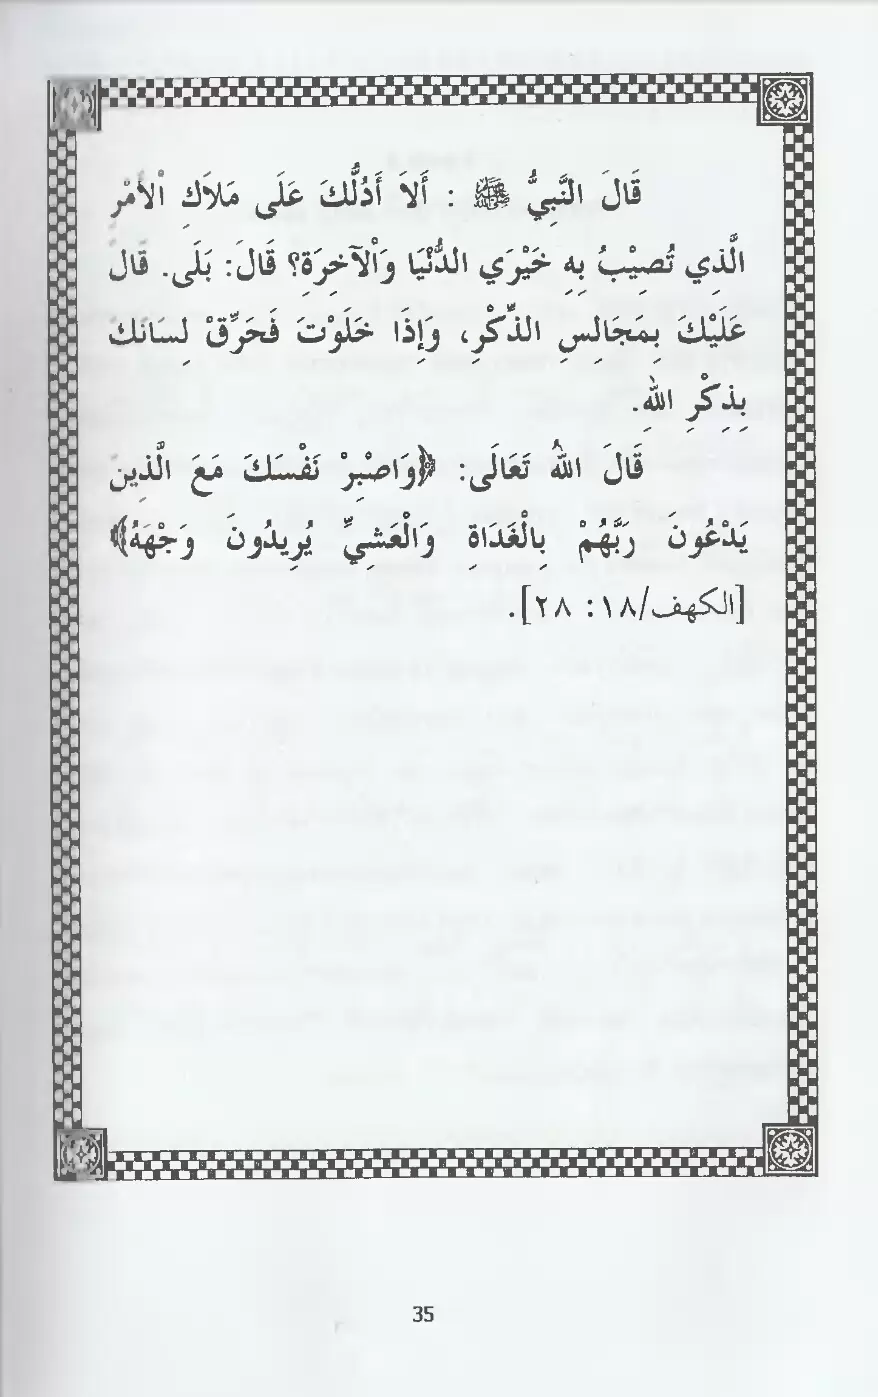 قَالَ النَّبِيُّ ﷺ : أَلَا أَدُلُّكَ عَلَى مَلَاكِ الْأَمْرِ
الَّذِي تُصِيْبُ بِهِ خَيْرَيِ الدُّنْيَا وَالْآخِرَةِ؟ قَالَ: بَلَى. قَالَ
عَلَيْكَ بِمَجَالِسِ الذِّكْرِ، وَإِذَا خَلَوْتَ فَحَرِّقْ لِسَانَكَ
بِذِكْرِ اللهِ.
قَالَ اللهُ تَعَالَى: ﴿وَاصْبِرْ نَفْسَكَ مَعَ الَّذِينَ
يَدْعُونَ رَبَّهُمْ بِالْغَدَاةِ وَالْعَشِيِّ يُرِيدُونَ وَجْهَهُ﴾
[الكهف/١٨: ٢٨].
35